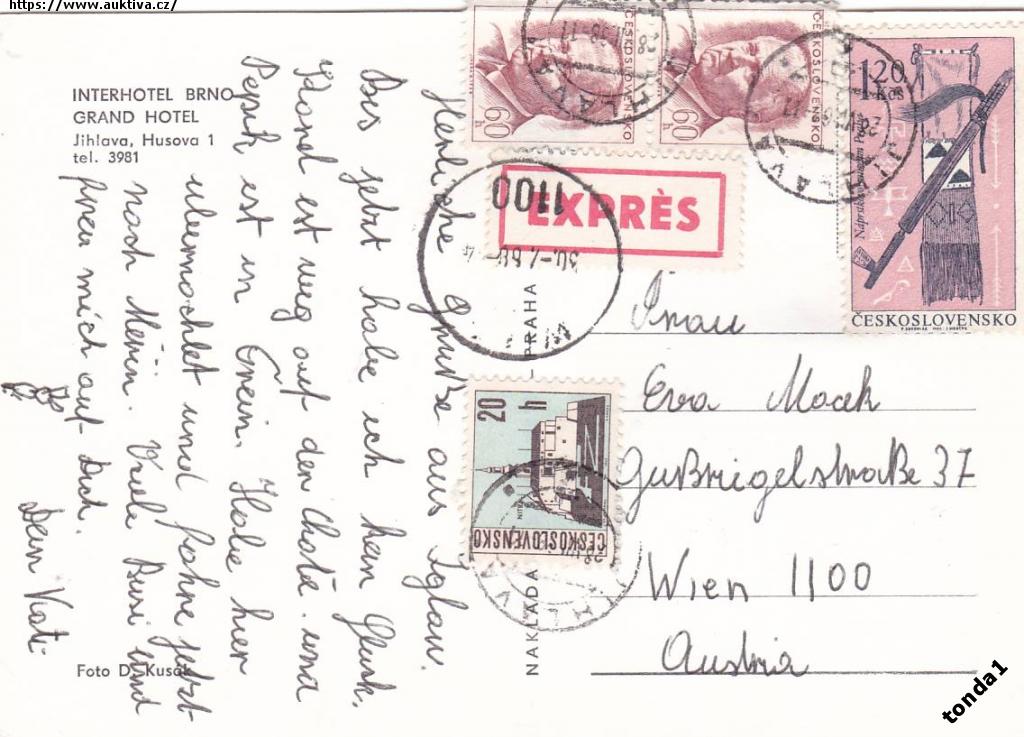 https://www.auktiva.cz/
INTERHOTEL BRNO
GRAND HOTEL
Jihlava, Husova 1
tel. 3981
Herzliche Grüße aus Iglau.
Bis jetzt habe ich kein Glück.
ist weg auf den Chotě. und
Pepik ist in Habe hier
übernachtet und fahre jetzt
nach Viele Busi und
freu mich auf Dich.
Dein Vati
Foto D. Kusák
NAKLADA
PRAHA
ČESKOSLOVENSKO
60 h
ČESKOSLOVENSKO
60 h
1,20 Kčs
Náprstkovo
ČESKOSLOVENSKO
JIHLAVA
JIHLAVA
EXPRÈS
1100
20 h
NITRA
ČESKOSLOVENSKO
JIHLAVA
Frau
Eva Mocek
Gußriegelstraße 37
Wien 1100
Austria
tonda1